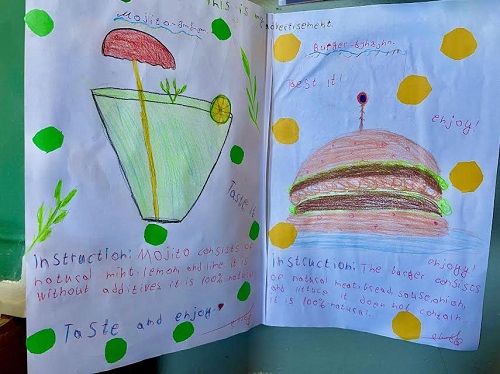 This is my advertisement.
Mojito
Taste it
Instruction: Mojito consists of
natural mint, lemon, and lime it is
without additives it is 100% natural
Taste and enjoy
Burger
Test it!
enjoy!
enjoyy!
Instruction: The burger consists
of natural meat, bread, sause, onion,
and lettuce it does not contain
it is 100% natural.